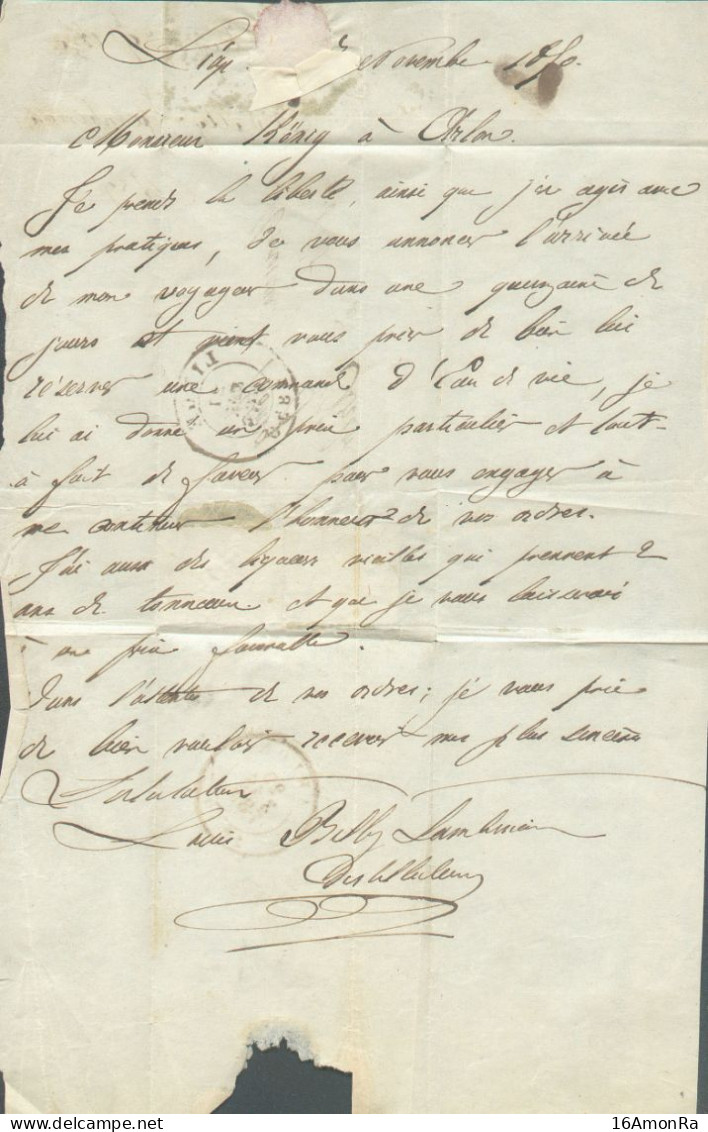 Novembre 18
Monsieur König à Arlon.
Je prends la liberté, ainsi que j'ai agis avec
mes pratiques, de vous annoncer l'arrivée
de mon voyageur dans une quinzaine de
jours et vient vous prier de bien lui
réserver une commande d'Eau de vie, je
lui ai donné un prix particulier et tout-
à fait de faveur pour vous engager à
me continuer l'honneur de vos ordres.
J'ai aussi des liqueurs vieilles qui prennent 2
ans de tonneau et que je vous laisserai
à un prix favorable.
Dans l'attente de vos ordres; je vous prie
de bien vouloir recevoir mes plus sincères
Salutations
Louis
Distillateur
16AmonRa